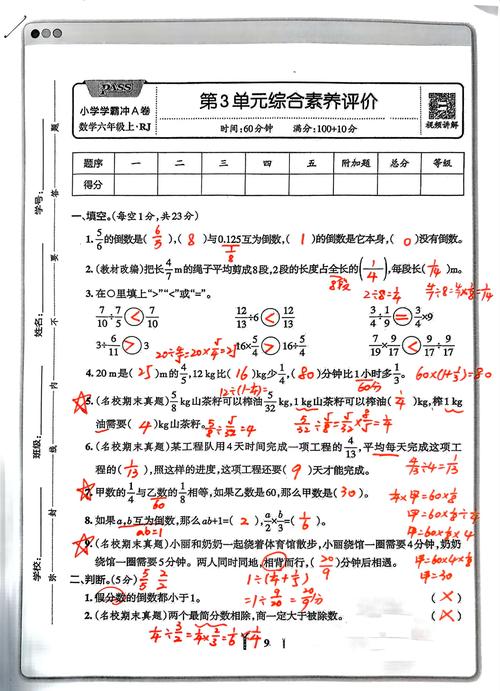 PASS
小学学霸冲A卷
数学六年级上·RJ
第3单元综合素养评价
时间:60分钟 满分:100+10分
视频讲解
题序 一 二 三 四 五 附加题 总分 等级
得分
一、填空。(每空1分,共23分)
1. 5/6的倒数是( 6/5 ),( 8 )与0.125互为倒数,( 1 )的倒数是它本身,( 0 )没有倒数。
1/8
2. (教材改编)把长4/7m的绳子平均剪成8段,2段的长度占全长的( 1/4 ),每段长( 1/14 )m。
8段
3. 在○里填上“>”“<”或“=”。
2÷8=1/4 4/7÷8=4/7×1/8=1/14
7/10÷7/5 < 7/10 12/13÷6 < 12/13 3/4÷1/9 = 3/4×9
3÷6/11 > 3 16×5/4 > 16÷5/4 7/19×9/17 < 9/17÷9/17
20÷4/5=20×5/4=25
4. 20m是( 25 )m的4/5,12kg比( 16 )kg少1/4,( 80 )分钟比1小时多1/3。 60×(1+1/3)=80
12÷(1-1/4)= 60分
5. (名校期末真题)5/8kg山茶籽可以榨油5/32kg,1kg山茶籽可以榨油( 1/4 )kg,榨1kg
油需要( 4 )kg山茶籽。 5/8÷5/32=4 5/32÷5/8=5/32×8/5=1/4
6. (名校期末真题)某工程队用4天时间完成一项工程的4/13,平均每天完成这项工
程的( 1/13 ),照这样的进度,这项工程还要( 9 )天才能完成。 4/13÷4=1/13
7. 甲数的1/4与乙数的1/8相等,如果乙数是60,那么甲数是( 30 )。 1/4×甲=60×1/8
60 甲=60×1/8÷1/4
8. 如果a,b互为倒数,那么ab+1=( 2 ),a/2×b/3=( 1/6 )。 甲=60×1/8×4
ab=1 甲=60×1/2
9. (名校期末真题)小丽和奶奶一起绕着体育馆散步,小丽绕馆一圈需要4分钟,奶奶 甲=30
绕馆一圈需要5分钟。两人同时同地,相背而行,( 20/9 )分钟后相遇。
二、判断。(5分) 1÷(1/4+1/5)
5/5 2/2 =1÷9/20=20/9分
1. 假分数的倒数都小于1。 ( × )
2. (名校期末真题)两个最简分数相除,商一定大于被除数。 ( × )
1/4÷3/2=1/4×2/3=1/6<1/4
9
学号:
姓名:
班级:
学校:
题
答
要
不
内
线
封
弥